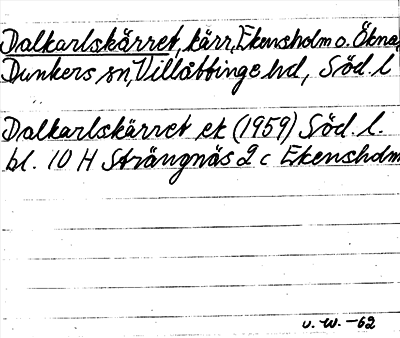 Dalkarlskärret, kärr, Ekensholm o. Ökna,
Dunkers sn, Villåttinge hd, Söd. l
Dalkarlskärret ek (1959) Söd. l.
bl. 10 H Strängnäs 2 c Ekensholm
v. W. -62